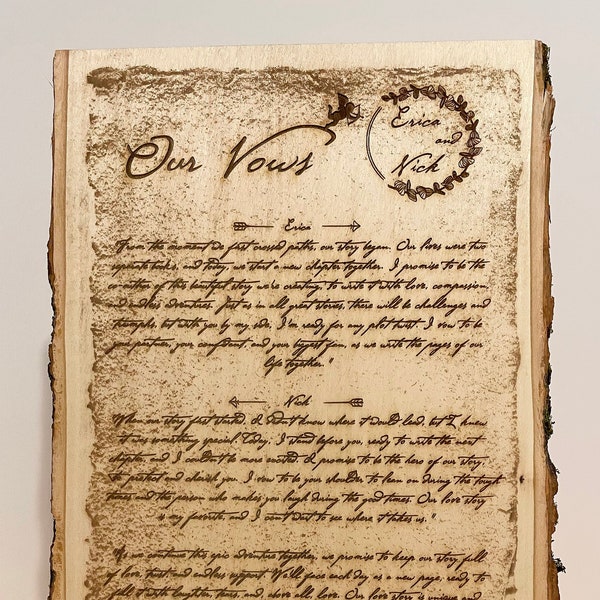 Our Vows
Erica
and
Nick
Erica
"From the moment we first crossed paths, our story began. Our lives were two
separate books, and today, we start a new chapter together. I promise to be the
co-author of this beautiful story we're creating, to write it with love, compassion,
and endless adventures. Just as in all great stories, there will be challenges and
triumphs, but with you by my side, I'm ready for any plot twist. I vow to be
your partner, your confidant, and your biggest fan, as we write the pages of our
life together."
Nick
"When our story first started, I didn't know where it would lead, but I knew
it was something special. Today, I stand before you, ready to write the next
chapter, and I couldn't be more excited. I promise to be the hero of our story,
to protect and cherish you. I vow to be your shoulder to lean on during the tough
times and the person who makes you laugh during the good times. Our love story
is my favorite, and I can't wait to see where it takes us."
"As we continue this epic adventure together, we promise to keep our story full
of love, trust, and endless support. We'll face each day as a new page, ready to
fill it with laughter, tears, and, above all, love. Our love story is unique and